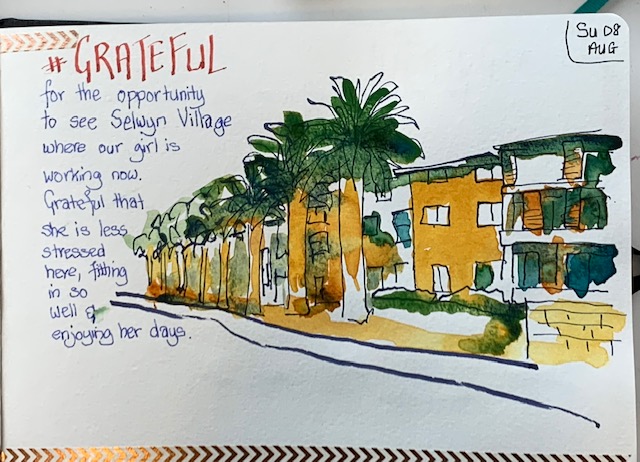 #GRATEFUL
for the opportunity
to see Selwyn Village
where our girl is
working now.
Grateful that
she is less
stressed
here, fitting
in so
well &
enjoying her days.
SU 08
AUG